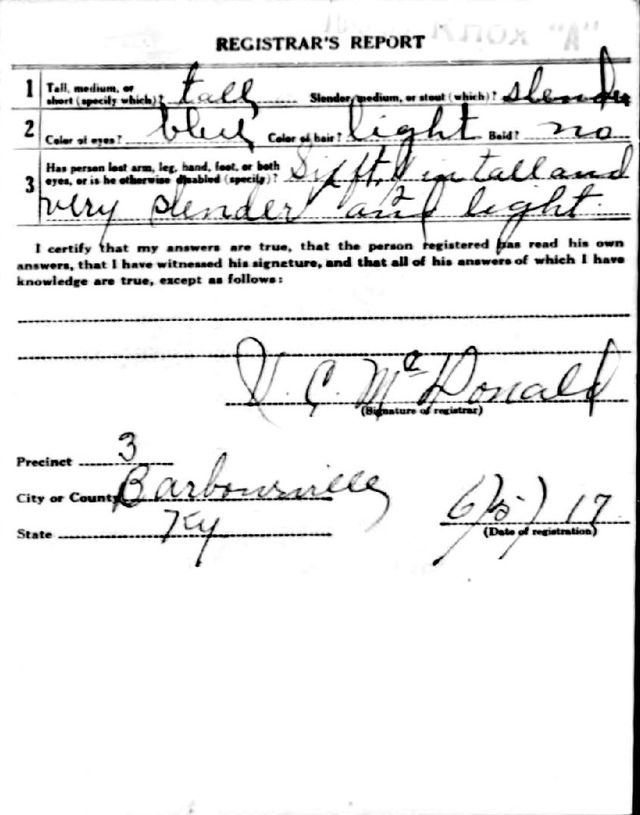 REGISTRAR'S REPORT
1 Tall, medium, or short (specify which)? tall Slender, medium, or stout (which)? slender
2 Color of eyes? blue Color of hair? light Bald? no
3 Has person lost arm, leg, hand, foot, or both
eyes, or is he otherwise disabled (specify)? in tall and
very slender and light
I certify that my answers are true, that the person registered has read his own
answers, that I have witnessed his signature, and that all of his answers of which I have
knowledge are true, except as follows:
C. McDonald
(Signature of registrar)
Precinct 3
City or County Barbourville
State Ky 6/5/17
(Date of registration)